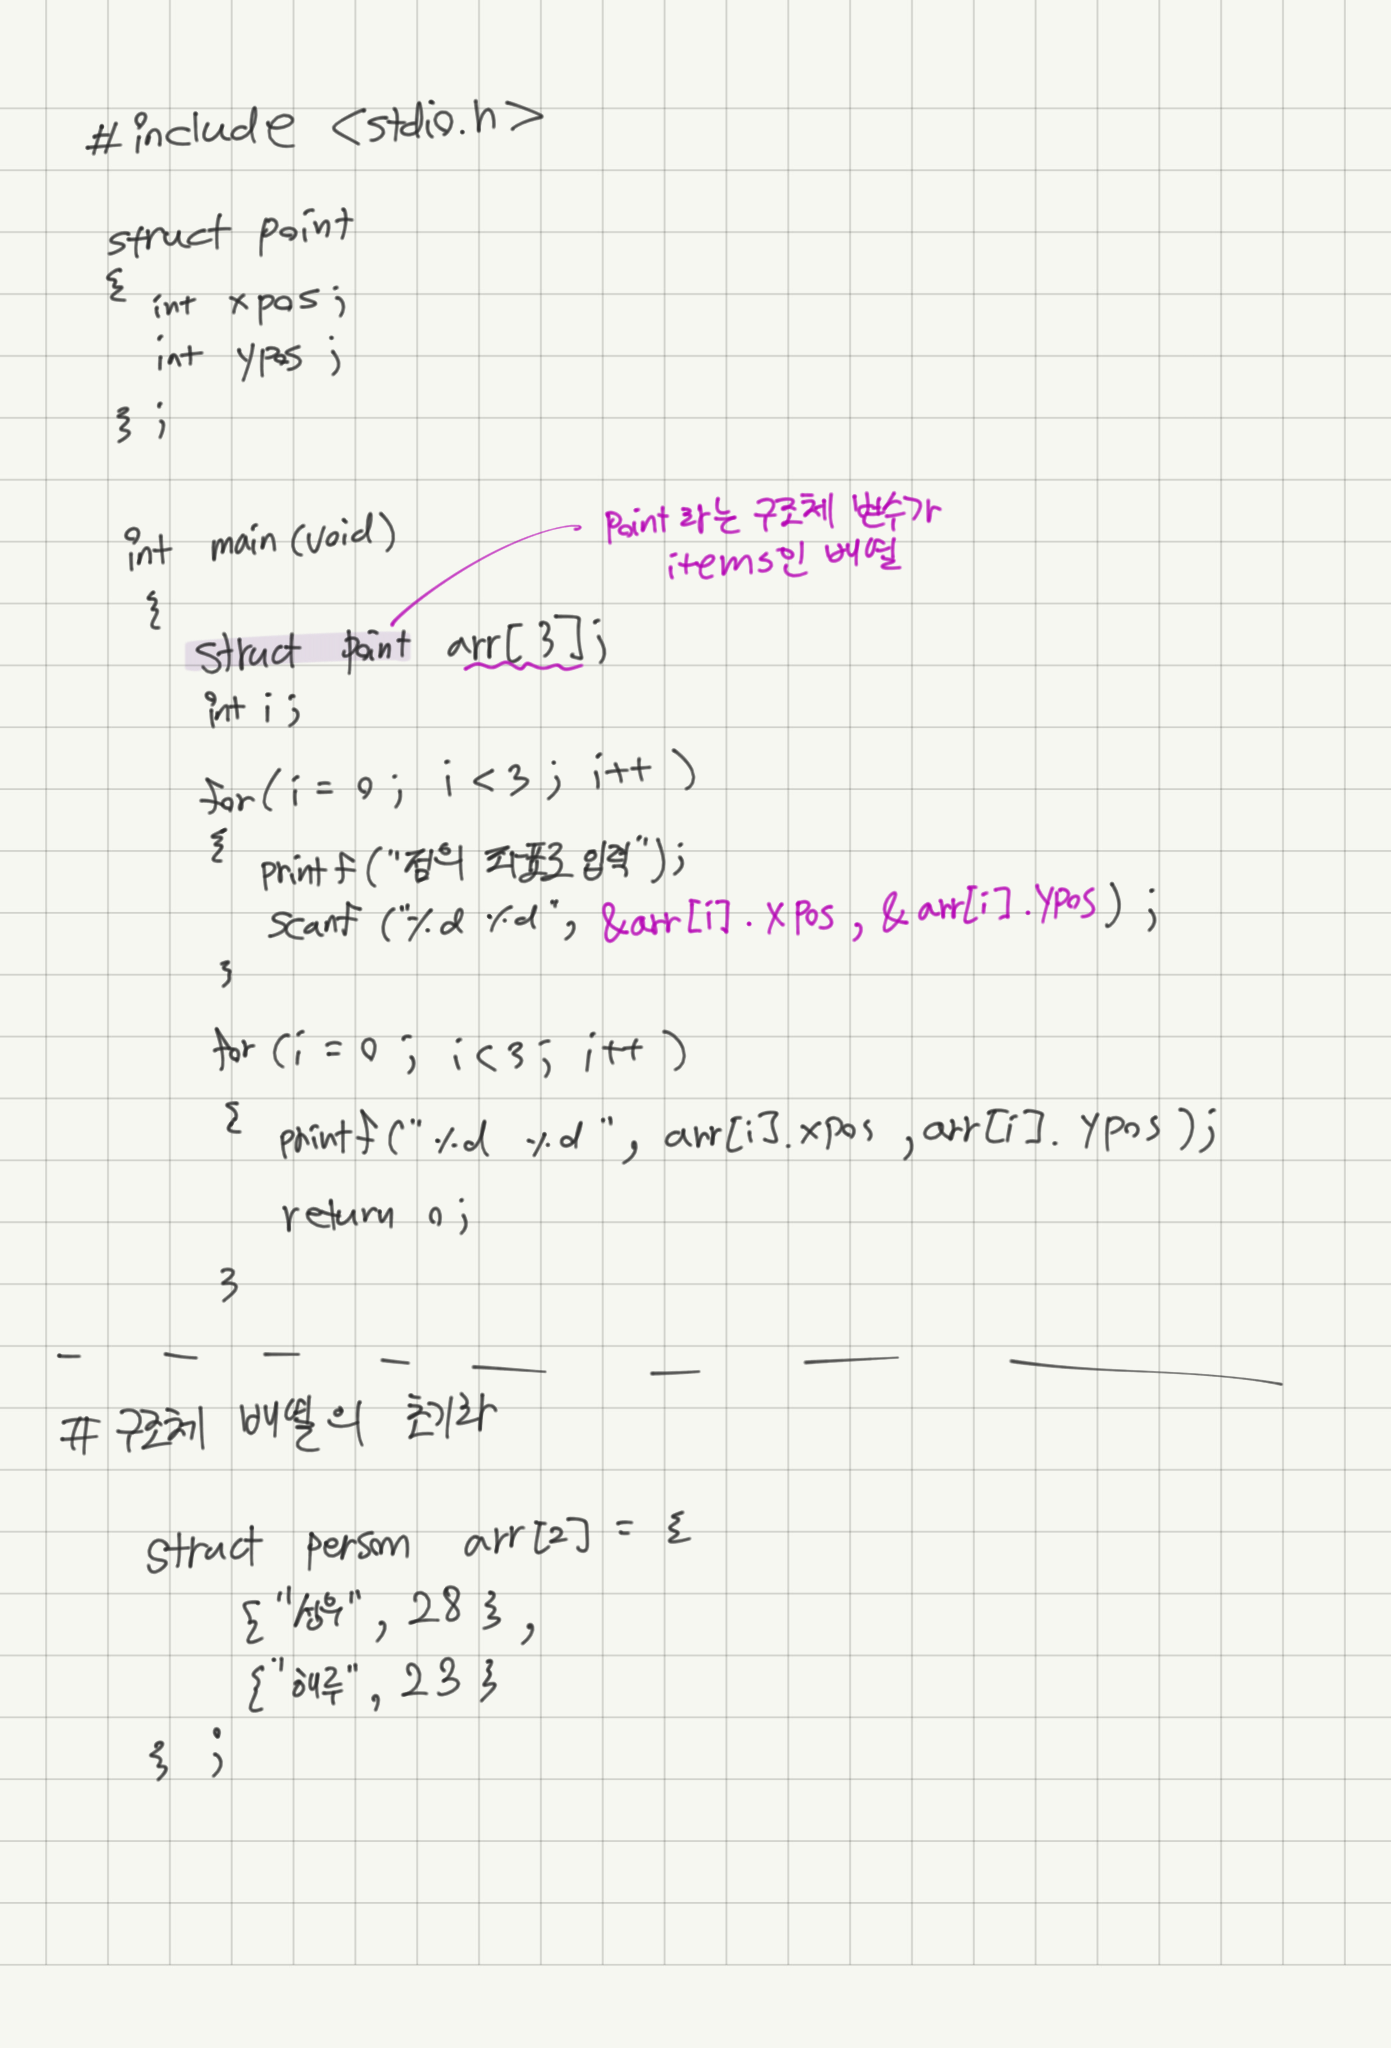 #include <stdio.h>
struct point
{ int xpos;
int ypos;
};
int main(void)
point라는 구조체 변수가
items인 배열
{
struct point arr[3];
int i;
for(i = 0; i < 3; i++)
{ printf("점의 좌표 입력");
scanf("%d %d", &arr[i].xpos, &arr[i].ypos);
}
for (i = 0; i < 3; i++)
{ printf("%d %d", arr[i].xpos, arr[i].ypos);
return 0;
}
# 구조체 배열의 초기화
struct person arr[2] = {
{"성우", 28},
{"해루", 23}
};